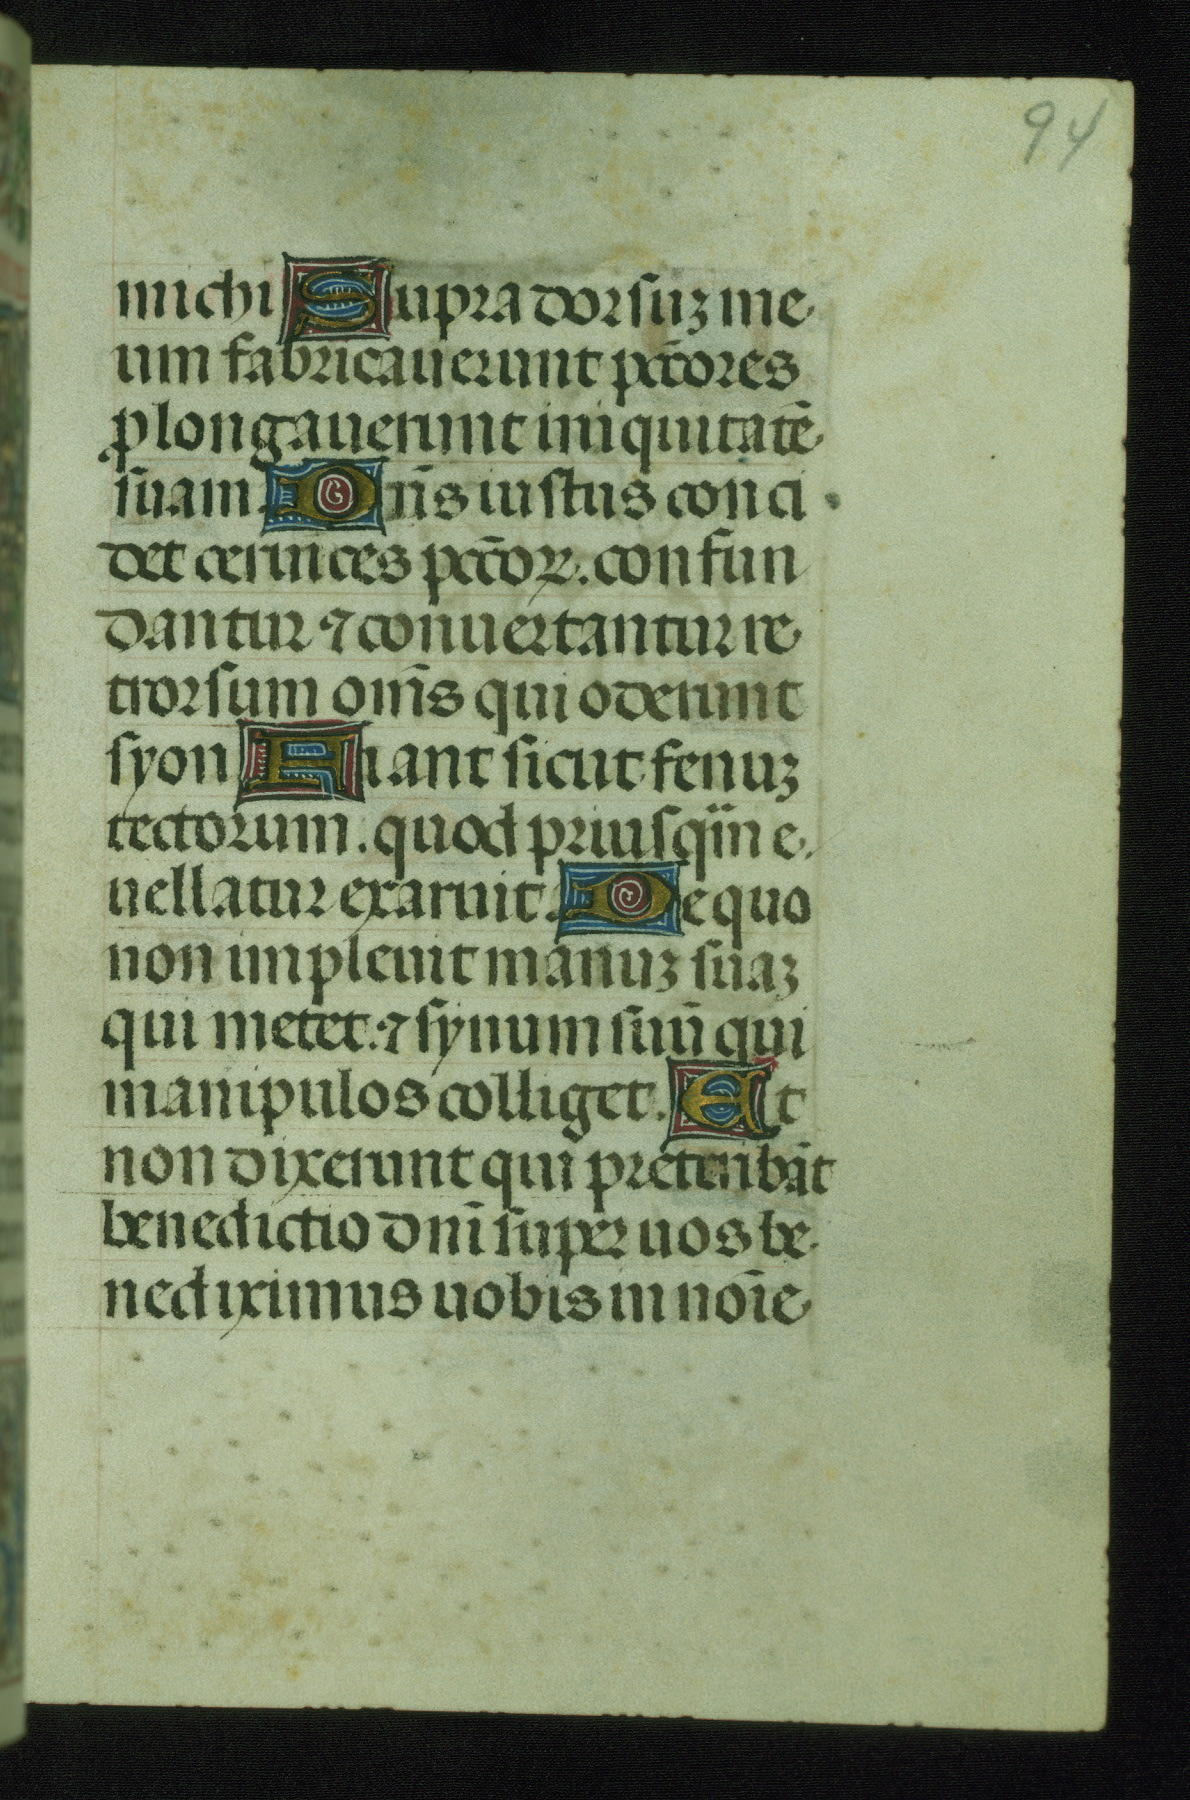 94
michi Supra dorsuʒ me
um fabricauerunt pctōres
ꝓlongauerunt iniquitatē
suam. Dn̄s iustus conci
det ceruices pctōꝝ. confun
dantur ⁊ conuertantur re
trorsum om̄s qui oderunt
syon Fiant sicut fenuʒ
tectorum. quod priusqᷓm e
uellatur exaruit. De quo
non impleuit manuʒ suaʒ
qui metet. ⁊ synum suū qui
manipulos colliget. Et
non dixerunt qui preteribāt
benedictio dn̄i super uos be
nediximus uobis in noīe